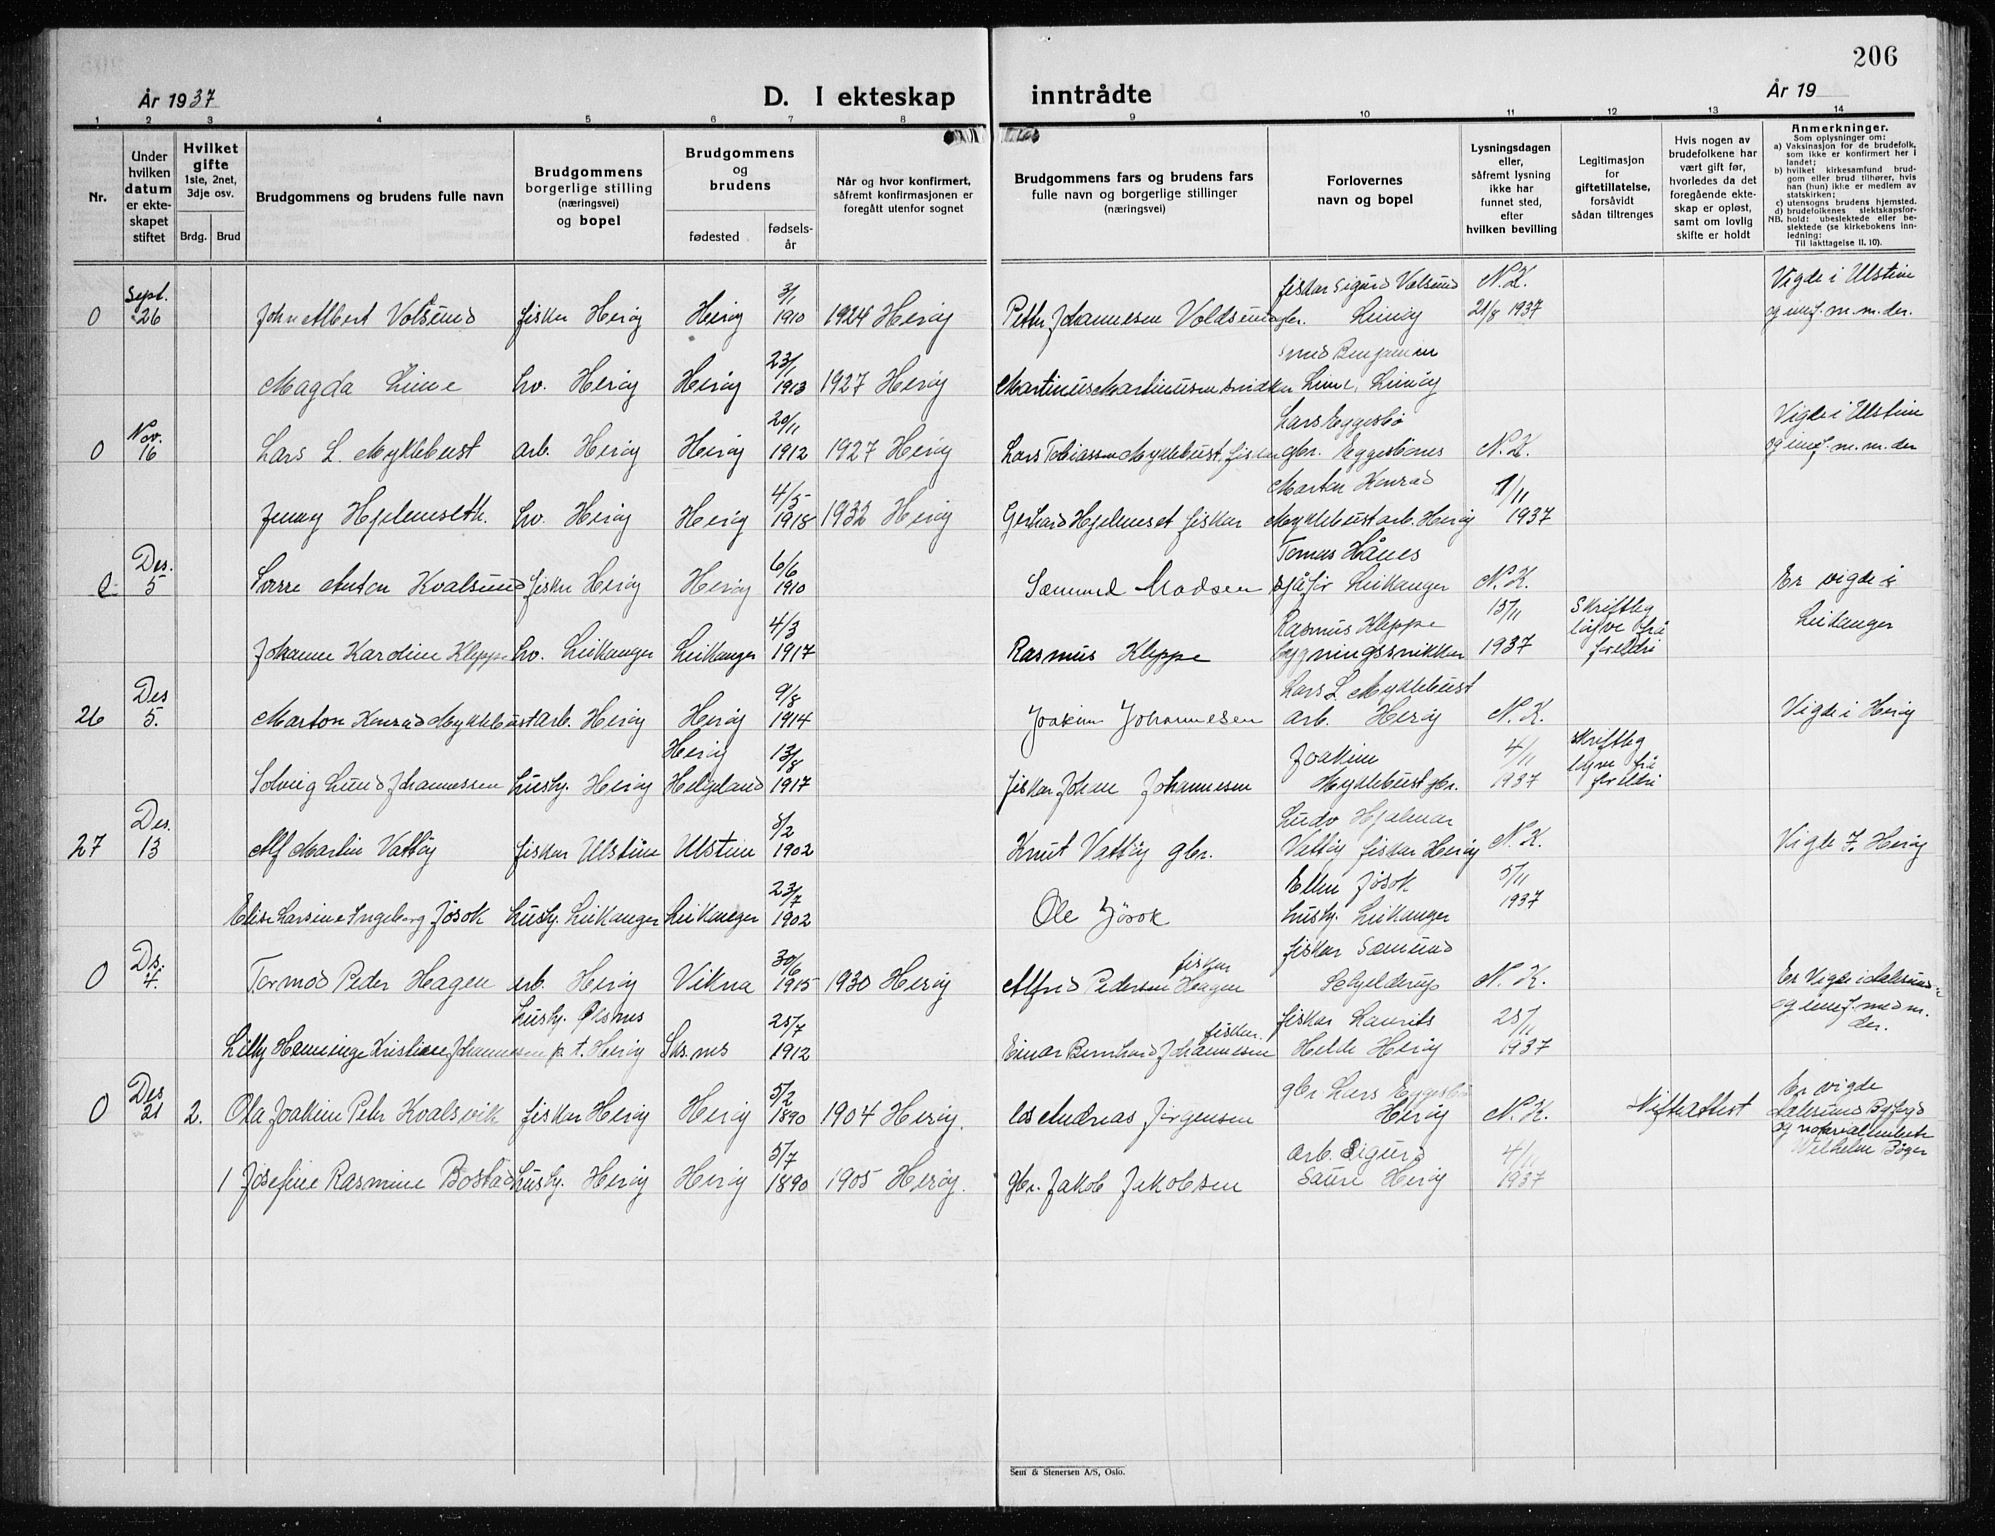 206
År 1937
D. I ekteskap inntrådte
År 19
1 2 3 4 5 6 7 8 9 10 11 12 13 14
Nr.
Under hvilken datum er ekteskapet stiftet
Hvilket gifte 1ste, 2net, 3dje osv.
Brdg. Brud
Brudgommens og brudens fulle navn
Brudgommens borgerlige stilling (næringsvei) og bopel
Brudgommens og brudens
fødested
fødselsår
Når og hvor konfirmert, såfremt konfirmasjonen er foregått utenfor sognet
Brudgommens fars og brudens fars fulle navn og borgerlige stillinger (næringsvei)
Forlovernes navn og bopel
Lysningsdagen eller, såfremt lysning ikke har funnet sted, efter hvilken bevilling
Legitimasjon for giftetillatelse, forsåvidt sådan tiltrenges
Hvis nogen av brudefolkene har vært gift før, hvorledes da det foregående ekteskap er opløst, samt om lovlig skifte er holdt
Anmerkninger.
Som oplysninger om:
a) Vaksinasjon for de brudefolk, som ikke er konfirmert her i landet;
b) hvilket kirkesamfund brudgom eller brud tilhører, hvis han (hun) ikke er medlem av statskirken;
c) utensogns brudens hjemsted.
d) brudefolkenes slektskapsforhold: ubeslektede eller beslektede (se kirkebokens innledning:
NB.
Til iakttagelse II. 10).
0 Sept. 26 John Albert Volsund fisker Herøy Herøy 3/1 1910 1924 Herøy Petter Johannesen Voldsund gbr. fiskar Sigurd Volsund Leinøy N.K. 21/8 1937 Vigde i Ulstein og innf. m. m. der.
Magda Leine hv. Herøy Herøy 23/1 1913 1927 Herøy Martinus Martinussen snidkar smed Benjamin Leine, Leinøy
0 Nov. 16 Lars L. Myklebust arb. Herøy Herøy 20/11 1912 1927 Herøy Lars Tobiassen Myklebust, fisker Lars Eggesbø gbr. Eggesbønes N.K. Vigde i Ulstein og innf. m. m. der
Jenny Hjelmseth. hv. Herøy Herøy 4/5 1918 1932 Herøy Gerhard Hjelmeset fiskar Marton Konrad Myklebust arb. Herøy 1/11 1937
0 Des. 5 Sverre Anton Kvalsund fisker Herøy Herøy 6/6 1910 Sæmund Madsen Tomas Hånes sjåfør Leikanger N.K. Er vigde i Leikanger
Johanne Karoline Kleppe hv. Leikanger Leikanger 4/3 1917 Rasmus Kleppe Rasmus Kleppe bygningssnikker 15/11 1937 Skriftleg løyve frå foreldri
26 Des 5. Marton Konrad Myklebust arb. Herøy Herøy 9/8 1914 Joakim Johannesen Lars L. Myklebust arb. Herøy N.K. Vigde i Herøy
Solveig Lund Johannessen hushj. Herøy Herøy Helgeland 13/8 1917 fiskar Johan Johannesen Joakim Myklebust gbr. 4/11 1937 Skriftleg løyve frå foreldri
27 Des. 13 Alf Martin Vattøy fiskar Ulstein Ulstein 5/2 1902 Knut Vattøy gbr. Ludv Hjalmar Vattøy fiskar Herøy N.K. Vigde i Herøy
Elise Larsine Ingeborg Jøsok hushj. Leikanger Leikanger 23/7 1902 Ole Jøsok Ellen Jøsok hushj. Leikanger 5/11 1937
0 Ds. 7. Tormod Peder Hagen arb. Herøy Vikna 30/6 1915 1930 Herøy Alfred Pedersen Hagen fiskar fiskar Sæmund Schjelderup N.K. Er Vigde i Aalesund og innf. med m. der.
Lilly Henninge Kristine Johannessen hushj. Øksnes p.t. Herøy Øksnes 25/7 1912 Einar Bernhard Johannesen fiskar. fiskar Laurits Helde Herøy 25/11 1937
0 Des 21 2. Ola Joakim Peter Kvalsvik fiskar Herøy Herøy 5/2 1890 1904 Herøy. Andreas Jørgensen gbr Lars Eggesbø Herøy N.K. Skifteattest Er vigde Aalesund Byfogd og notarialkontor Wilhelm Bøger
1 Josefine Rasmine Bostad hushj. Herøy Herøy 5/7 1890 1905 Herøy. gbr. Jakob Jakobsen arb. Sigurd Saure Herøy 4/11 1937
Sem & Stenersen A/S, Oslo.